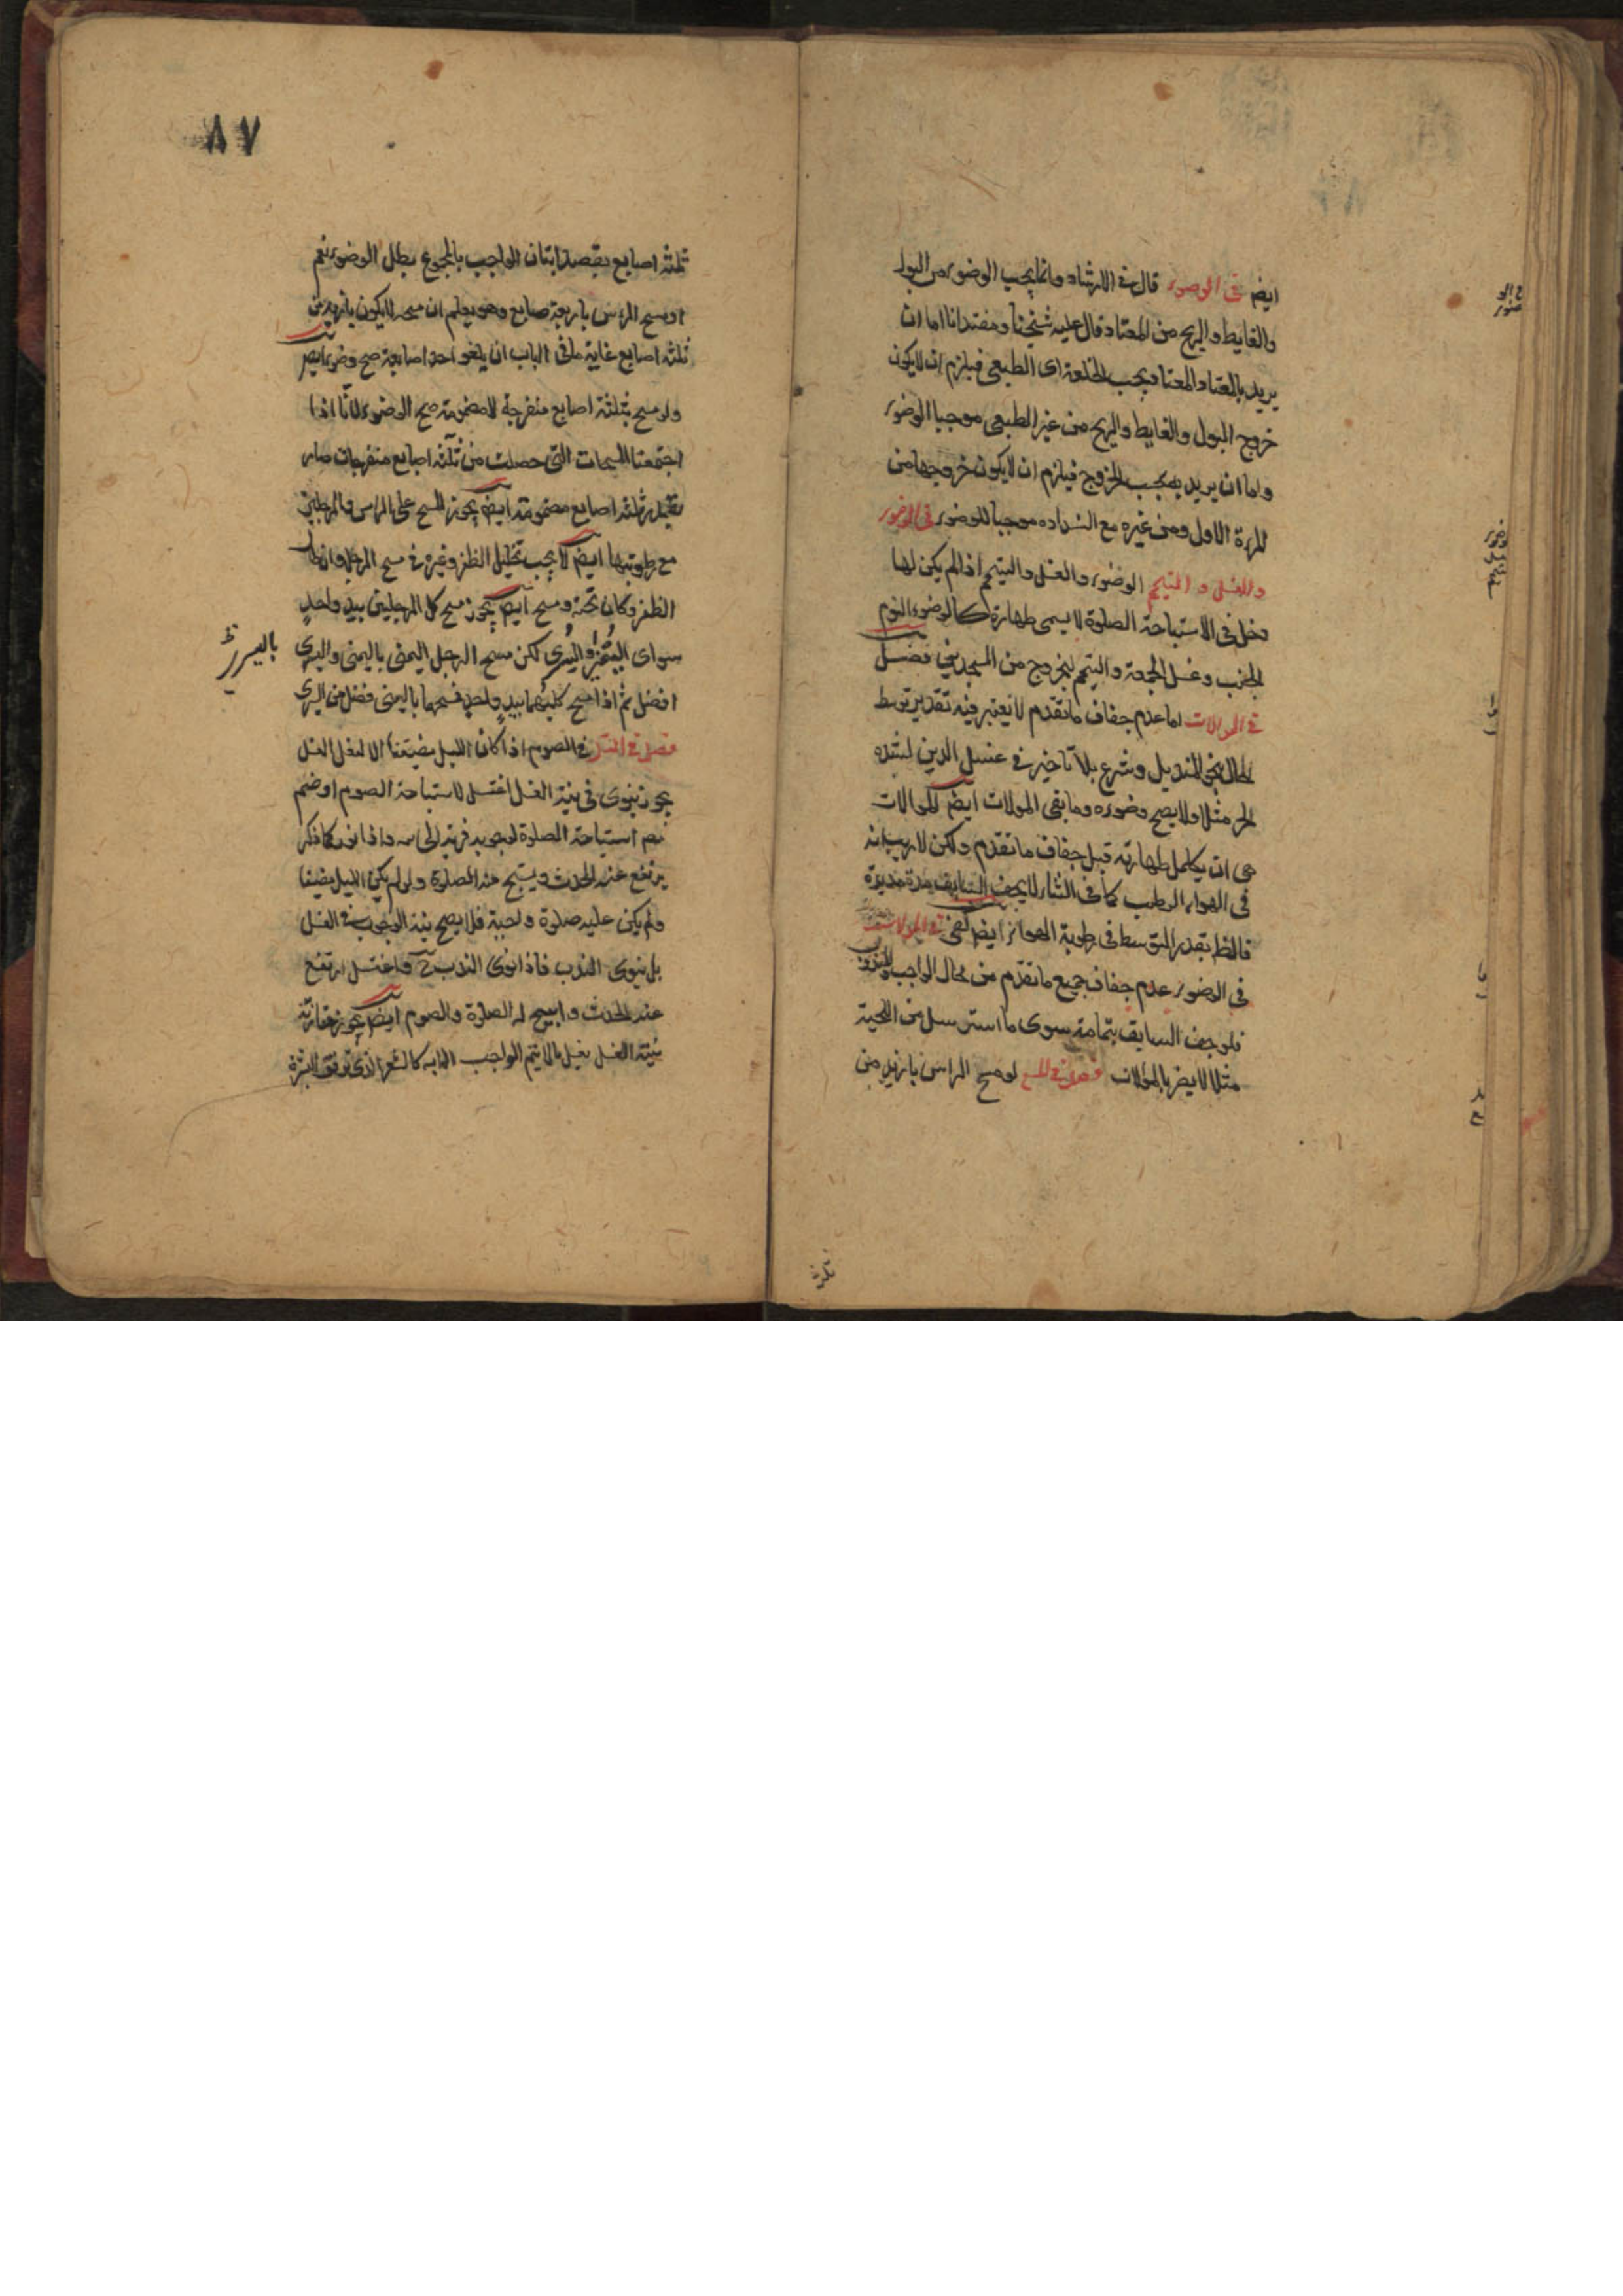 ايض في الوضوء قال في الارشاد وانما يجب الوضوء من البول
والغايط والريح من المعتاد قال عليه شيخنا ومقتدانا اما ان
يريد بالمعتاد المعتاد بحب الخلقة اى الطبعى فيلزم ان لا يكون
خروج البول والغايط والريح من غير الطبعى موجبا الوضوء
واما ان يريد به بحب الخروج فيلزم ان لا يكون خروجها من
المرة الاول ومن غيره مع انسداده موجبا للوضوء في الوضوء
والغسل و التيمم الوضوء والغسل والتيمم اذا لم يكن لها
دخل في الاستباحة الصلوة لا يسمى طهارة كالوضوء النوم
الجنب وغسل الجمعة والتيمم لخروج من المسجدين فصل
في الموالات اما عدم جفاف ما تقدم لا يعتبر فيه تقدير توسط
الحال المنديل وشرع بلا تاخير في غسل اليدين لشده
الحر مثلا ولا يصح وضوءه وما بقى المولات ايض الموالات
هى ان يكامل طهارته قبل جفاف ما تقدم ولكن لا ريب انه
في الهواء الرطب كما في الشتاء لا يجف السابق مدة مديدة
فالظ تقدير المتوسط في رطوبة الهواء ايض يكفى في الموالات
في الوضوء عدم جفاف جميع ما تقدم من محال الواجب والمندوب
فلو جف السابق بتمامه سوى ما استرسل من اللحية
مثلا لا يضر بالموالات فصل في المسح لو مسح الراس بازيد من
ثلثه
٨٧
ثلثه اصابع بقصد اتيان الواجب بالمجموع بطل الوضوء نعم
لو مسح الراس باربعة اصابع وهو يعلم ان مسحه لا يكون بازيد من
ثلثه اصابع غاية ما في الباب ان يلغو احد اصابعه صح وضوء ايض
ولو مسح بثلثة اصابع منفرجة لا مضمومة صح الوضوء لانا اذا
اجتمعنا المسحات التى حصلت من ثلثه اصابع منفرجات صار
بقدر ثلثه اصابع مضمومة ايض يجوز المسح على الراس والرجلين
مع رطوبتها ايض لا يجب تخليل الظفر وغيره في مسح الرجل وان طال
الظفر وكان تحته وسخ ايض يجوز مسح كل الرجلين بيد واحد
سواى اليمنى واليسرى لكن مسح الرجل اليمنى باليمنى واليسرى
باليسرى ظ
افضل ثم اذا مسح كليهما بيد واحد فمسحهما باليمنى افضل من اليسرى
فصل في الغسل في الصوم اذا كان الليل مضيقا الا لفعل الغسل
يجوز ينوى في نية الغسل اغتسل لاستباحة الصوم او ضم
استباحة الصلوة لوجوبه قربة الى الله واذا نوى كما ذكر
يرتفع عنه الحدث ويستبح عنه الصلوة ولو لم يكن الليل مضيقا
ولم يكن عليه صلوة واجبة فلا يصح نية الوجوب في الغسل
بل ينوى الندب فاذا نوى الندب واغتسل ارتفع
عنه الحدث وابيح له الصلوة والصوم ايض يجوز مقارنة
نية الغسل بغسل ما لا يتم الواجب الا به كالشعر الذى فوق البشرة